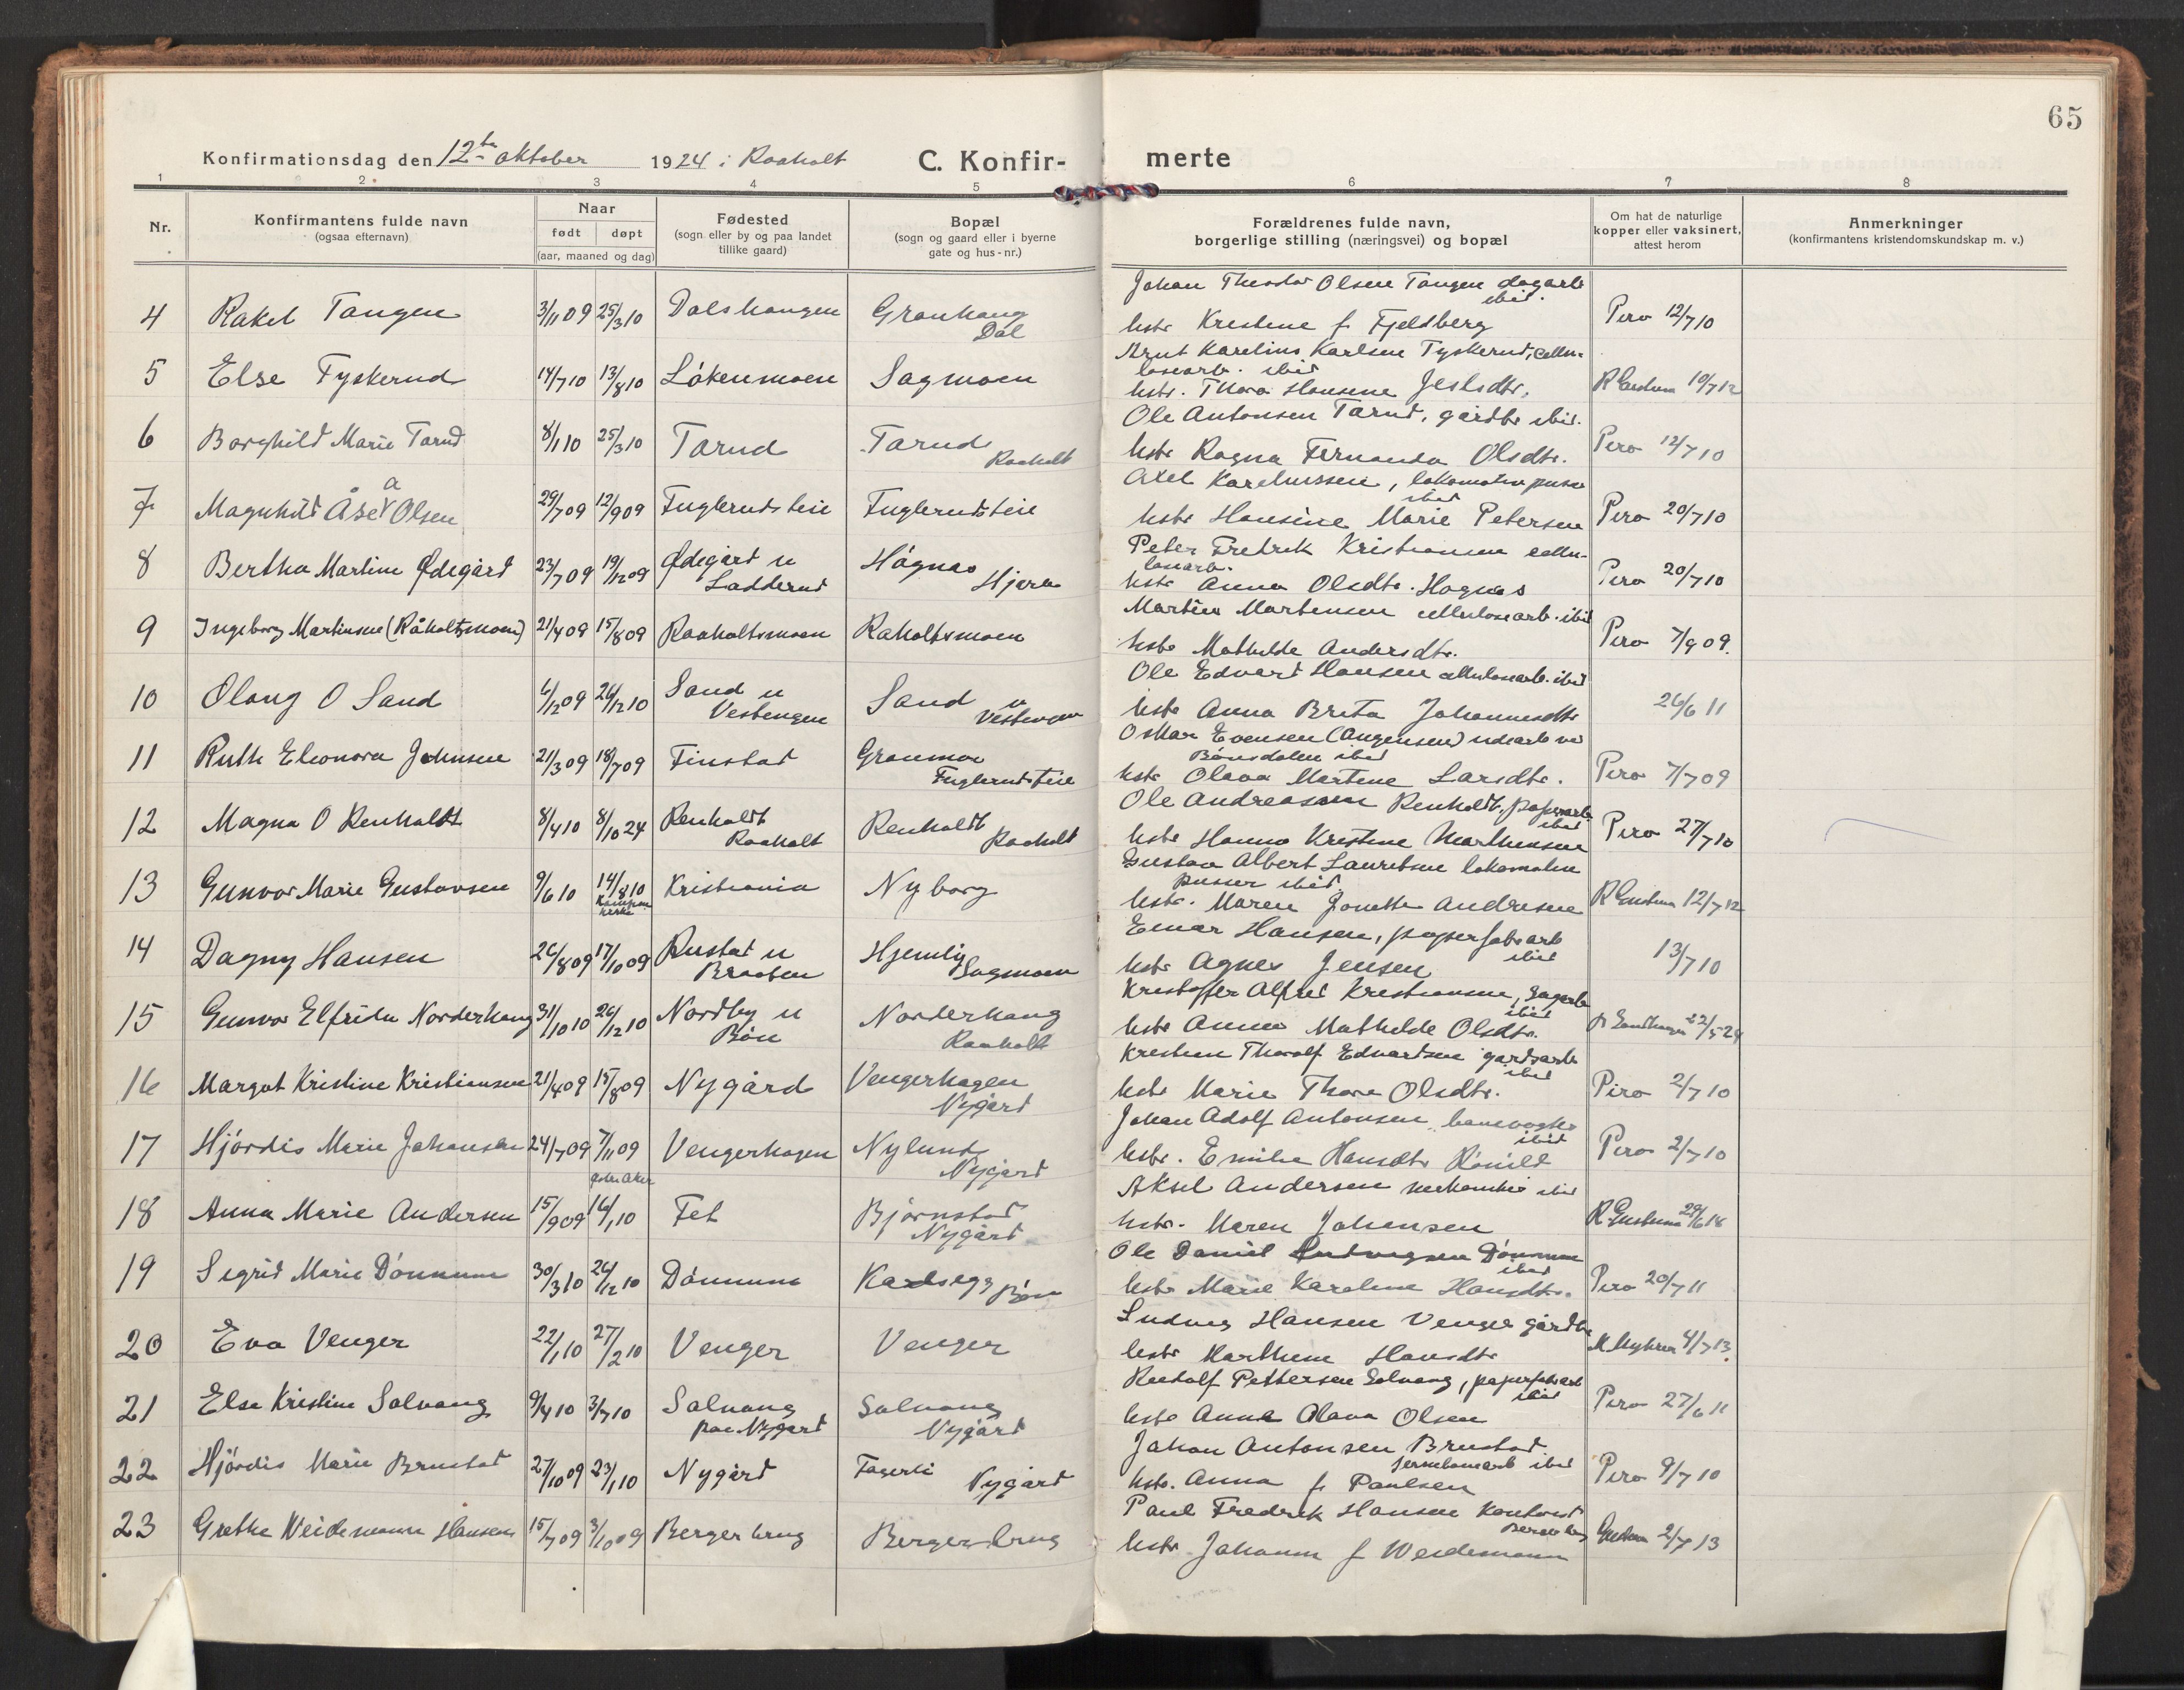 65
Konfirmationsdag den 12te oktober 1924 i Raaholt
C. Konfir- merte
1 2 3 4 5 6 7 8
Nr.
Konfirmantens fulde navn
(ogsaa efternavn)
Naar
født døpt
(aar, maaned og dag)
Fødested
(sogn eller by og paa landet
tillike gaard)
Bopæl
(sogn og gaard eller i byerne
gate og hus-nr.)
Forældrenes fulde navn,
borgerlige stilling (næringsvei) og bopæl
Om hat de naturlige
kopper eller vaksinert,
attest herom
Anmerkninger
(konfirmantens kristendomskundskap m. v.)
Johan Theodor Olsen Tangen dagarb
ibid.
4 Rakel Tangen 3/11 09 25/3 10 Dalshaugen Granhaug
Dal
hstr Kristine f. Fjeldberg Pero 12/7 10
Knut Karelius Karlsen Tyskerud, cellu-
losearb. ibid
5 Else Tyskerud 14/7 10 13/8 10 Løkenmoen Sagmoen
hstr. Thora Hansine 10/7 12
Ole Antonsen Tarud, gårdbr ibid.
6 Borghild Marie Tarud 8/1 10 25/3 10 Tarud Tarud
Raaholt
hstr Ragna Fernanda Olsdtr. Pero 12/7 10
Axel Kareliussen, lokomotivpusser
ibid
7 Magnhild Åsea Olsen 29/7 09 12/9 09 Fuglerudseie Fuglerudseie
hstr Hansine Marie Petersen Pero 20/7 10
Peter Fredrik Kristiansen cellu-
losearb.
8 Bertha Martine Ødegård 23/7 09 19/12 09 Ødegård u
Ladderud
Høgnes
Hjera
hstr Anna Olsdtr. Hognes Pero 20/7 10
Martin Martinsen cellulosearb. ibid
9 Ingeborg Martinsen (Råholtsmoen) 21/4 09 15/8 09 Raaholtsmoen Raholtsmoen
hstr Mathilde Andersdtr. Pero 7/9 09.
Ole Edvard Hansen cellulosearb. ibid
10 Olaug O Sand 6/12 09 26/12 10 Sand u
Vestengen
Sand u
Vestengen
hstr Anna Brita Johannesdtr 26/6 11
Oskar Evensen (Augensen) udearb ved
Bønsdalen ibid
11 Ruth Eleonora Johnsen 21/3 09 18/7 09 Finstad Granmoe
Fuglerudseie
hstr Olava Martine Larsdtr. Pero 7/7 09
Ole Andreassen Renholdt, papirarb.
ibid
12 Magna O Renholdt 8/4 10 8/10 24 Renholdt
Raaholt
Renholdt
Raaholt
hstr Hanna Kristine Marthinsen Pero 27/7 10
Gustav Albert Lauritsen lokomotiv
pusser ibid.
13 Gunvor Marie Gustavsen 9/6 10 14/8 10
Kampen
kirke
Kristiania Nyborg
hstr. Maren Jonette Andresen 12/7 12
Einar Hansen, papirfabarb
ibid
14 Dagny Hansen 26/8 09 17/10 09 Rustad u
Braaten
Hjemlig
Sagmoen
hstr Agnes Jensen 13/7 10
Kristoffer Alfred Kristiansen, Sagarb
ibid
15 Gunvor Elfrida Norderhaug 31/10 10 26/12 10 Nordby u
Bøn
Norderhaug
Raaholt
hstr Anna Mathilde Olsdtr. 22/5 24
Kristian Thoralf Edvardsen gardsarb
ibid
16 Margot Kristine Kristiansen 21/4 09 15/8 09 Nygård Vengerhagen
Nygård
hstr Marie Thora Olsdtr. Piro 2/7 10
Johan Adolf Antonsen, banevogter
ibid
17 Hjördis Marie Johansen 24/7 09 7/11 09 Vengerhagen Nylund
Nygård
hstr. Emilie Hansdtr Rönild Pero 2/7 10
Aksel Andersen mekaniker ibid
18 Anna Marie Andersen 15/9 09 16/1 10 Fet Bjørnstad
Nygård
hstr. Maren Johansen 18
Ole Daniel Ludvigsen Dönnum
ibid
19 Sigrid Marie Dönnum 30/3 10 26/12 10 Dönnum Karlsegg
Bøn
hstr Marie Karoline Hansdtr. Pero 20/7 11
Ludvig Hansen Venger gårdbr
20 Eva Venger 22/1 10 27/2 10 Venger Venger
hstr Marthine Hansdtr 4/7 13.
Rudolf Pettersen Solvang, papirfabarb
ibid
21 Else Kristine Solvang 9/4 10 3/7 10 Solvang
paa Nygård
Solvang
Nygård
hstr Anna Olava Olsen Pero 27/6 11
Johan Antonsen Brustad
jernbanearb ibid
22 Hjördis Marie Brustad 27/10 09 23/1 10 Nygård Fagerli
Nygård
hstr. Anna f. Paulsen Pero 9/7 10
Paul Fredrik Hansen kontorist
Berger brug
23 Grethe Weidemann Hansen 15/7 09 3/10 09 Berger brug Berger brug
hstr. Johanne f. Weidemann 2/7 13